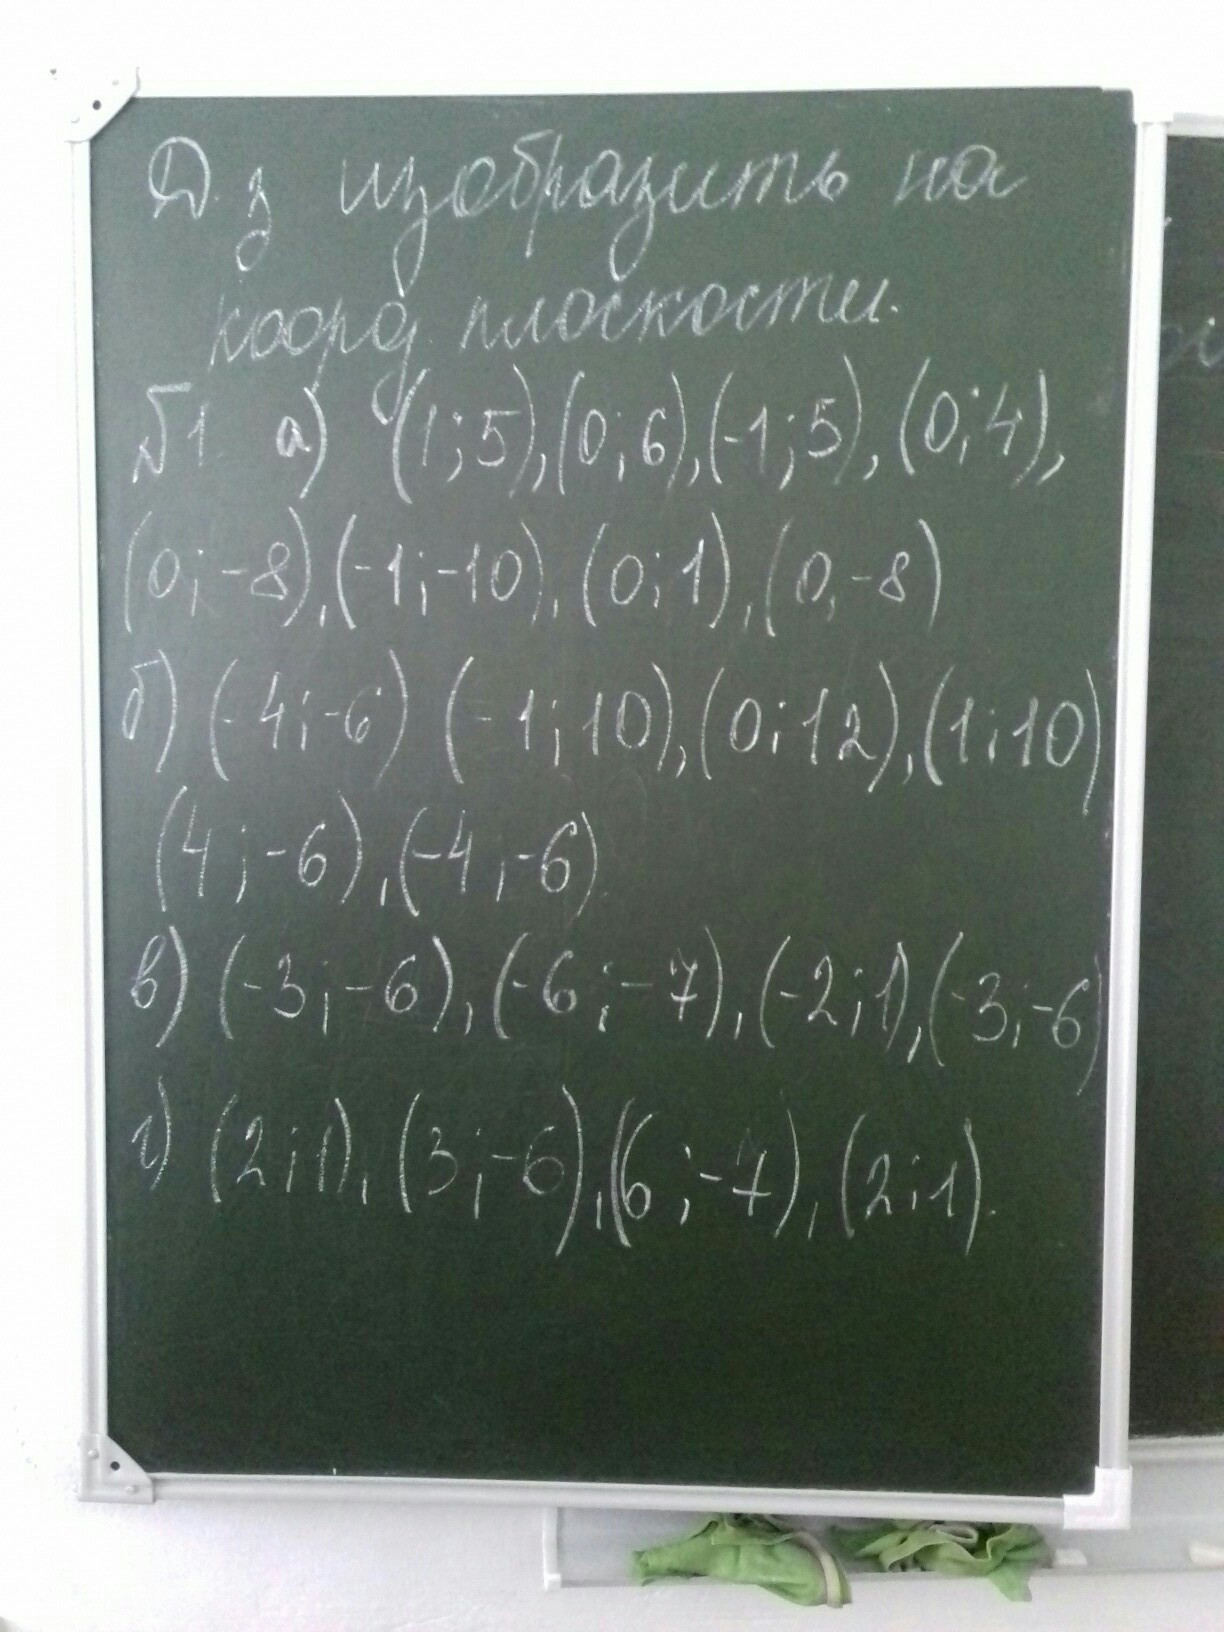 Д.з изобразить на
коорд. плоскости.
№1 а) (1;5),(0;6),(-1;5),(0;4),
(0;-8),(-1;-10),(0;1),(0,-8)
б) (-4;-6) (-1;10),(0;12),(1;10)
(4;-6),(-4,-6)
в) (-3;-6),(-6;-7),(-2;1),(-3;-6)
г) (2;1),(3;-6),(6;-7),(2;1).